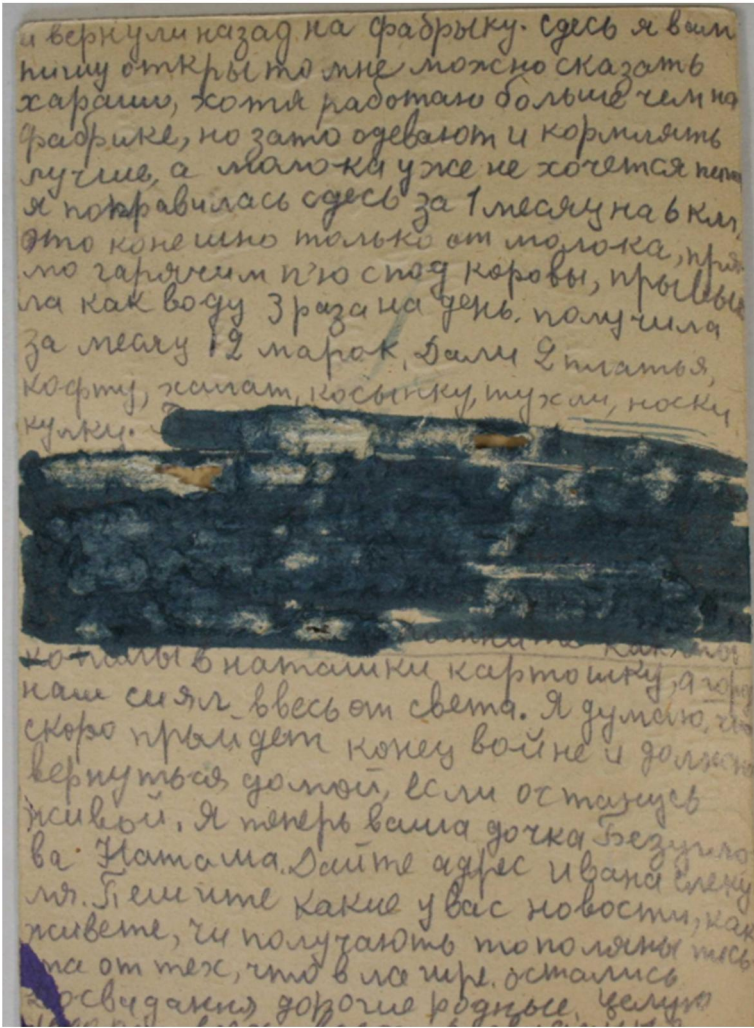 и вернули назад на фабрыку. сдесь я вам
пишу открыто мне можно сказать
харашо, хотя работаю больше чем на
фабрике, но зато одевают и кормлять
лучше, а молока уже не хочется
я поправилась сдесь за 1 месяц на 6 клг,
это конешно только от молока, пря-
мо гарячим п'ю спод коровы, прывы
ла как воду 3 раза на день. получила
за месяц 12 марок, Дали 2 платья,
кофту, халат, косынку, тухли, носки
кулки.
как мы
копалы в наташки картошку, а горо
наш сиял ввесь от света. Я думаю, что
скоро прыйдет конец войне и должен
вернуться домой, если останусь
живой. Я теперь ваша дочка Безугло-
ва Наташа. Дайте адрес Ивана
ля. Пешите какие у вас новости, как
живете, чи получають тополяны пись
ма от тех, что в лагире. остались
досвидания дорогие родные, целую